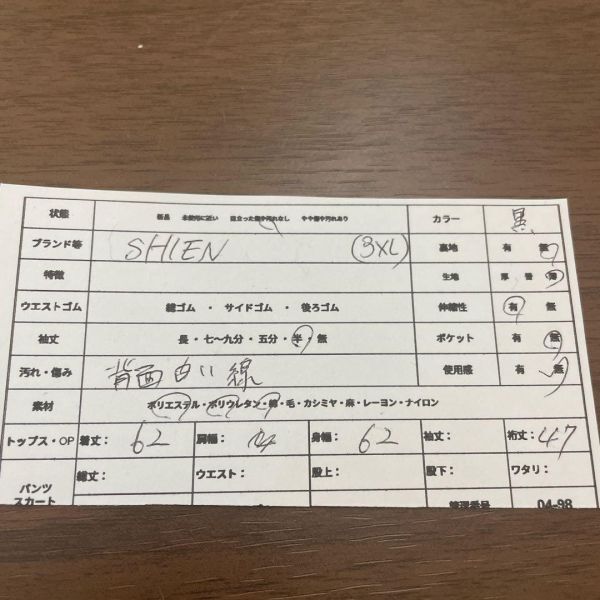 状態 新品 未使用に近い 目立った傷や汚れなし やや傷や汚れあり カラー 黒
ブランド等 SHIEN (3XL) 裏地 有 無
特徴 生地 厚 普 薄
ウエストゴム 総ゴム ・ サイドゴム ・ 後ろゴム 伸縮性 有 無
袖丈 長・七〜九分・五分・半・無 ポケット 有 無
汚れ・傷み 背面白い線 使用感 有 無
素材 ポリエステル・ポリウレタン・綿・毛・カシミヤ・麻・レーヨン・ナイロン
トップス・OP 着丈: 62 肩幅: 身幅: 62 袖丈: 裄丈: 47
パンツ 総丈: ウエスト: 股上: 股下: ワタリ:
スカート 管理番号 04-98